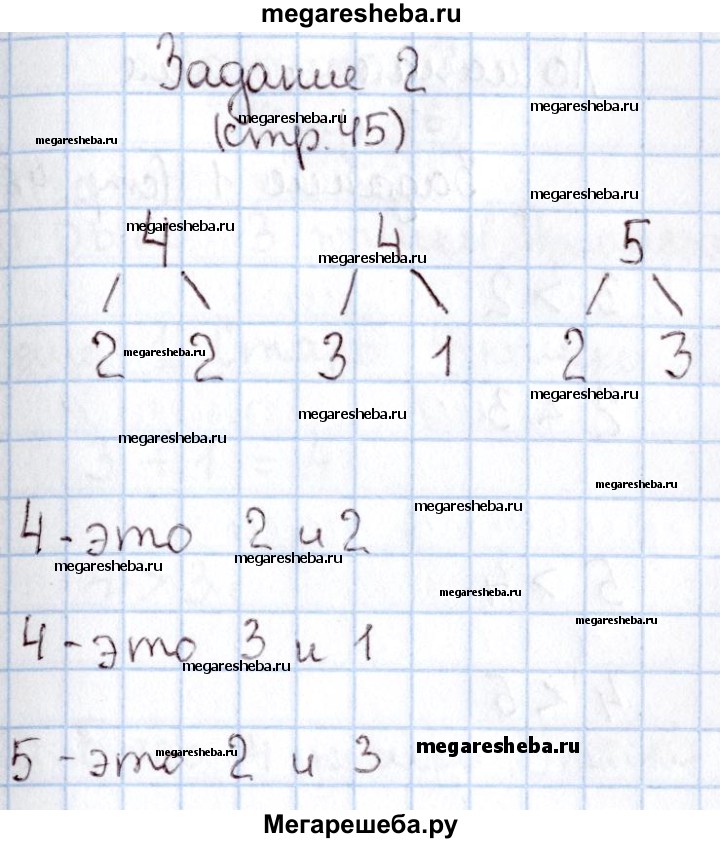 megaresheba.ru
Задание 2
megaresheba.ru
megaresheba.ru
(стр. 45)
megaresheba.ru
megaresheba.ru
megaresheba.ru
4 4 5
megaresheba.ru
2 2 3 1 2 3
megaresheba.ru
megaresheba.ru
megaresheba.ru
megaresheba.ru
megaresheba.ru
megaresheba.ru
4 - это 2 и 2
megaresheba.ru
megaresheba.ru
megaresheba.ru
megaresheba.ru
4 - это 3 и 1
megaresheba.ru
5 - это 2 и 3
megaresheba.ru
megaresheba.ru
Мегарешеба.ру